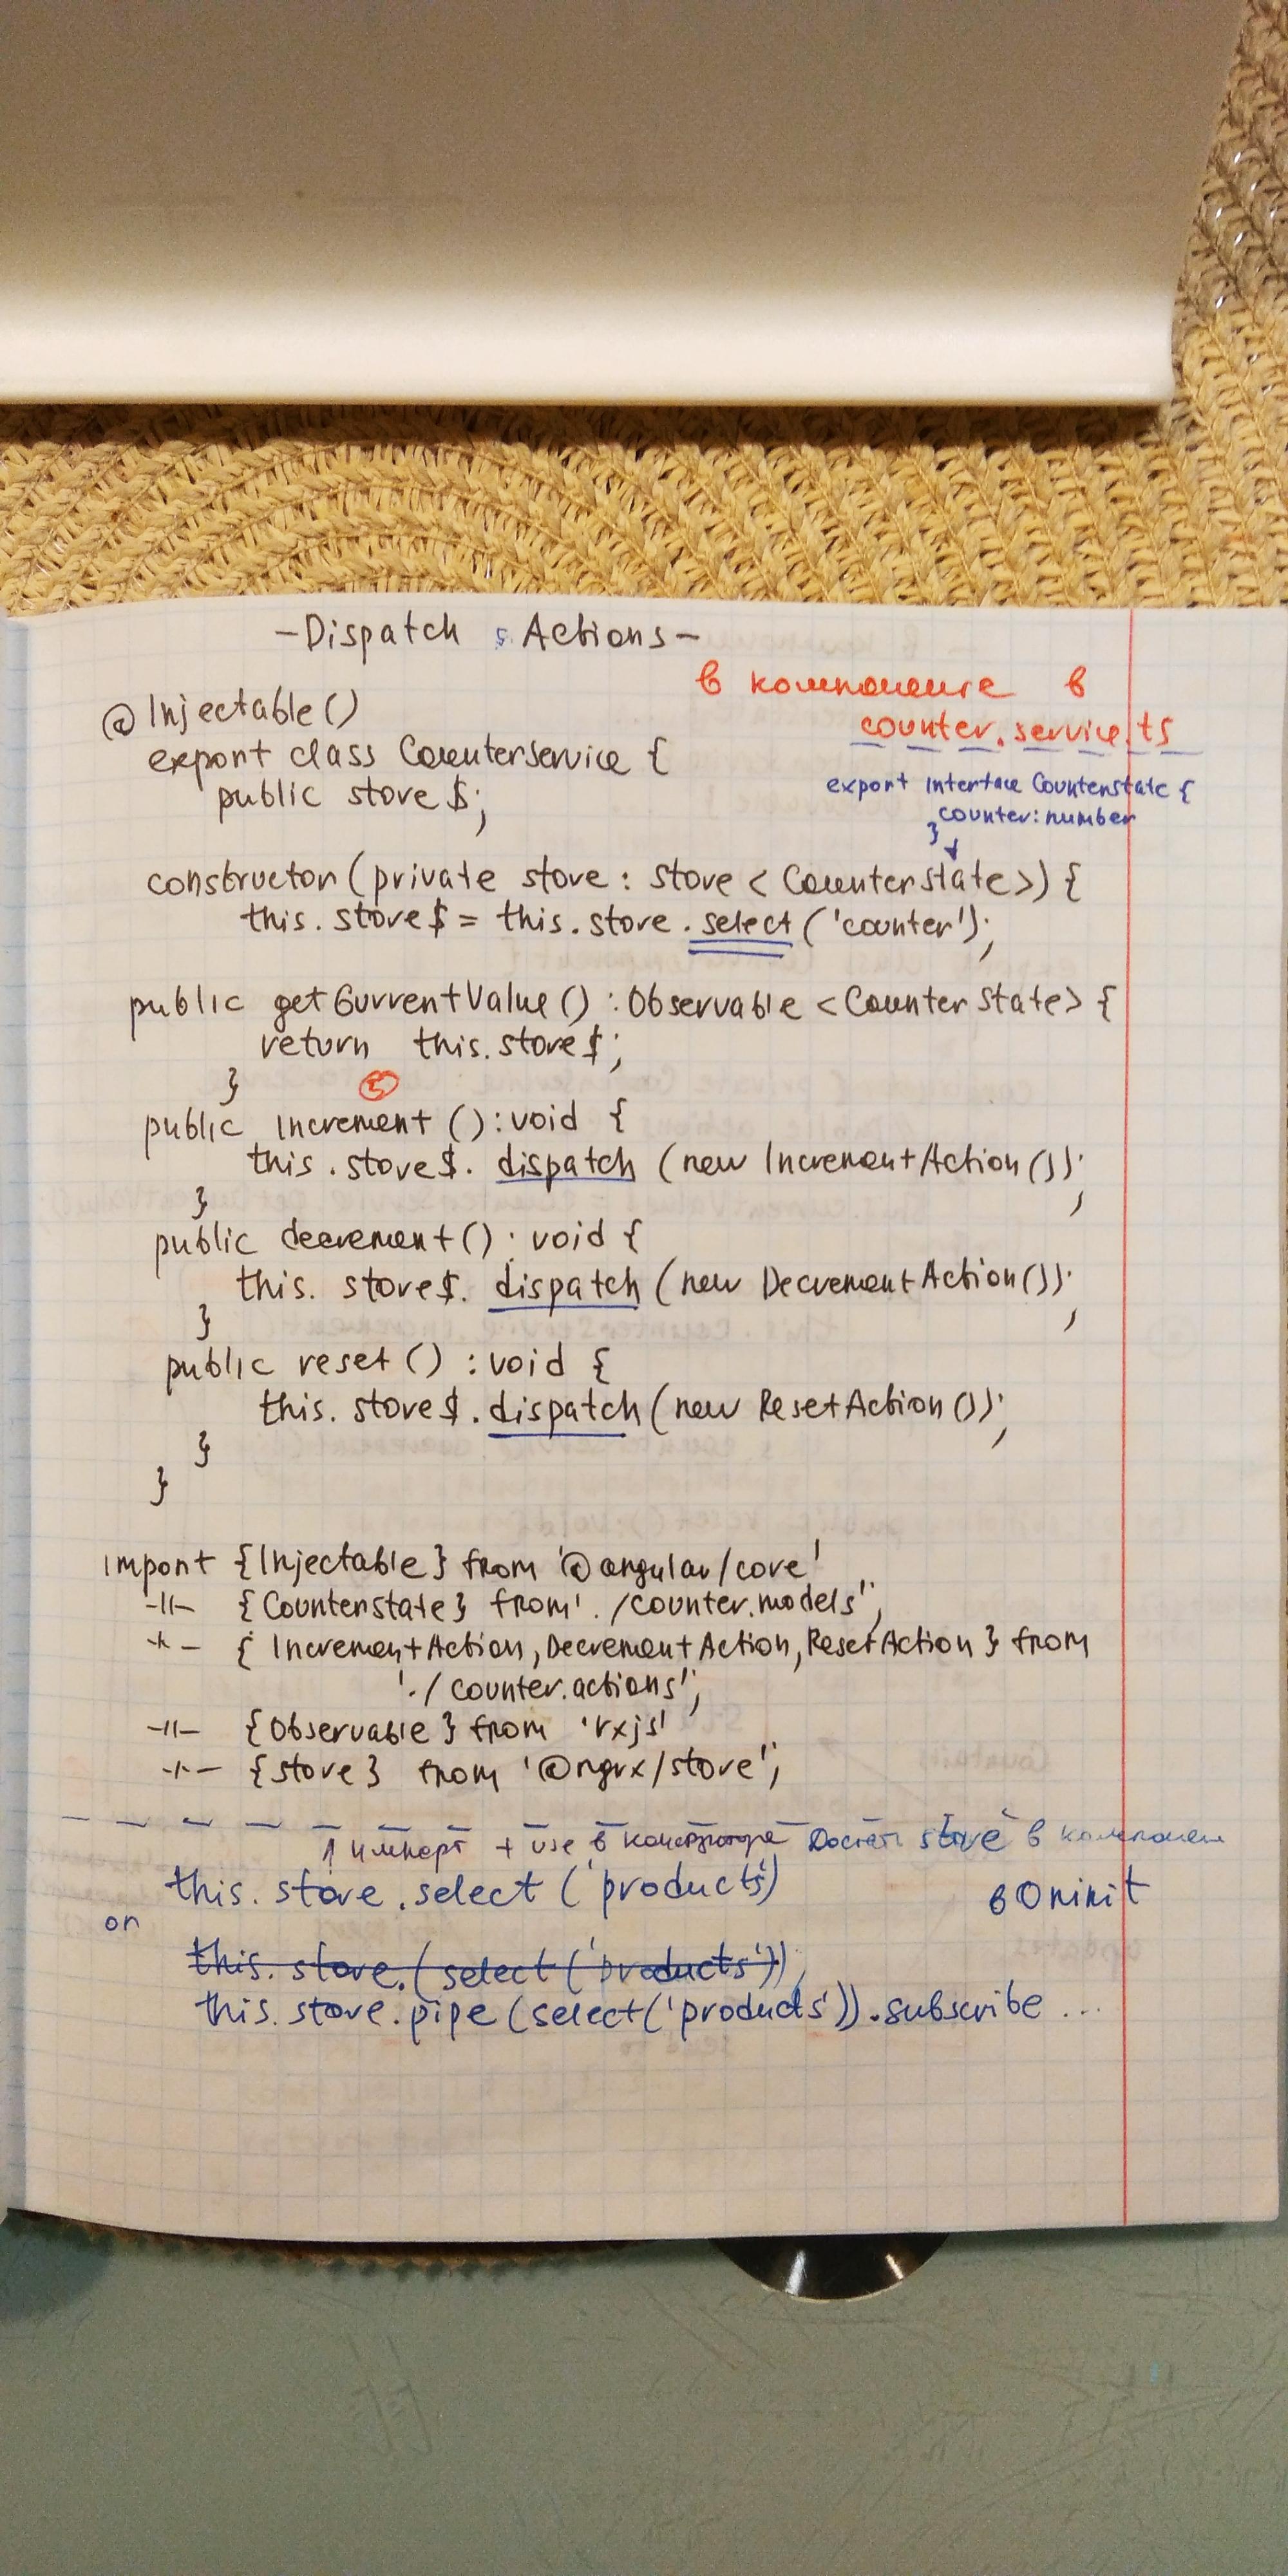 -Dispatch Actions-
в компоненте в
counter.service.ts
@Injectable()
export class CounterService {
public store$;
export interface Counterstate {
counter: number
}
constructor(private store: Store<CounterState>) {
this.store$ = this.store.select('counter');
public getCurrentValue(): Observable <CounterState> {
return this.store$;
}
5
public increment(): void {
this.store$. dispatch (new IncrementAction());
}
public decrement(): void {
this. store$. dispatch (new DecrementAction());
}
public reset() : void {
this. store$.dispatch (new ResetAction());
}
}
import {Injectable} from '@angular/core'
-||- {Counterstate} from './counter.models';
-||- { IncrementAction, DecrementAction, ResetAction } from
'./counter.actions';
-||- {Observable} from 'rxjs'
-||- {store} from '@ngrx/store';
1 импорт + use в конструкторе Достать store в компонен
this. store.select ('products') в Oninit
or
this. store.(select('products'));
this. store.pipe (select('products')).subscribe ...